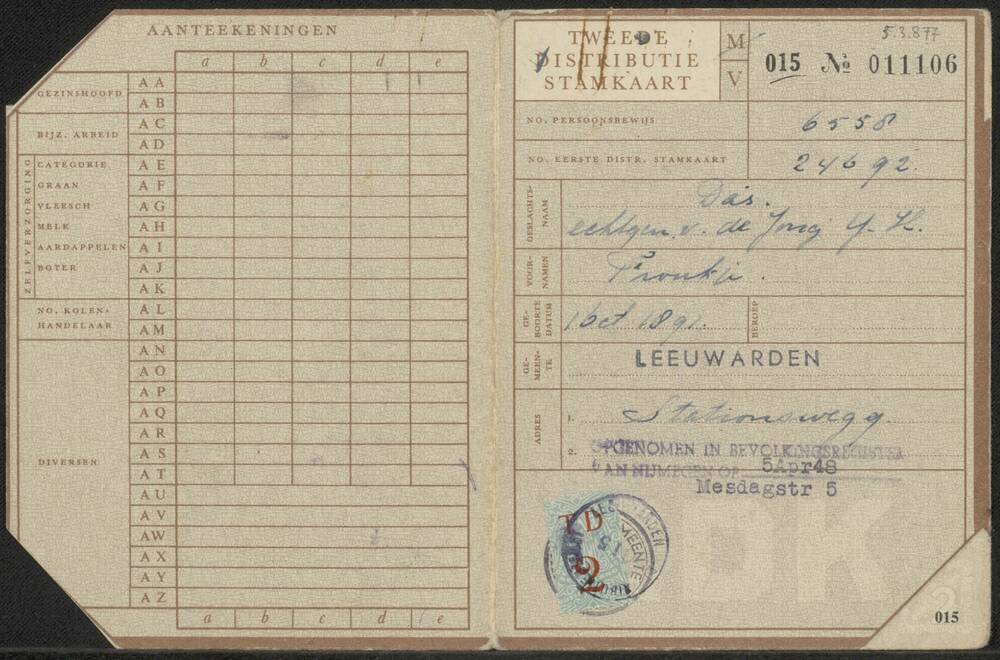 AANTEEKENINGEN
a b c d e
GEZINSHOOFD
A A
A B
BIJZ. ARBEID
A C
A D
ZELFVERZORGING
CATEGORIE
A E
GRAAN
A F
VLEESCH
A G
MELK
A H
AARDAPPELEN
A I
BOTER
A J
A K
NO. KOLEN-
HANDELAAR
A L
A M
A N
A O
A P
A Q
A R
DIVERSEN
A S
A T
A U
A V
A W
A X
A Y
A Z
a b c d e
5.3.877
TWEEDE
DISTRIBUTIE
STAMKAART
M
V
015 No 011106
NO. PERSOONSBEWIJS
6558
NO. EERSTE DISTR. STAMKAART
24692.
GESLACHTS-
NAAM
Das.
echtgen. v. de Jong
VOOR-
NAMEN
Froukje.
GE-
BOORTE
DATUM
1 Oct 1891.
BEROEP
GE-
MEEN-
TE
LEEUWARDEN
ADRES
1.
Stationsweg
2.
OPGENOMEN IN BEVOLKINGSREGISTER
VAN NIJMEGEN OP 5Apr48
Mesdagstr 5
TD
2
DK
2
015